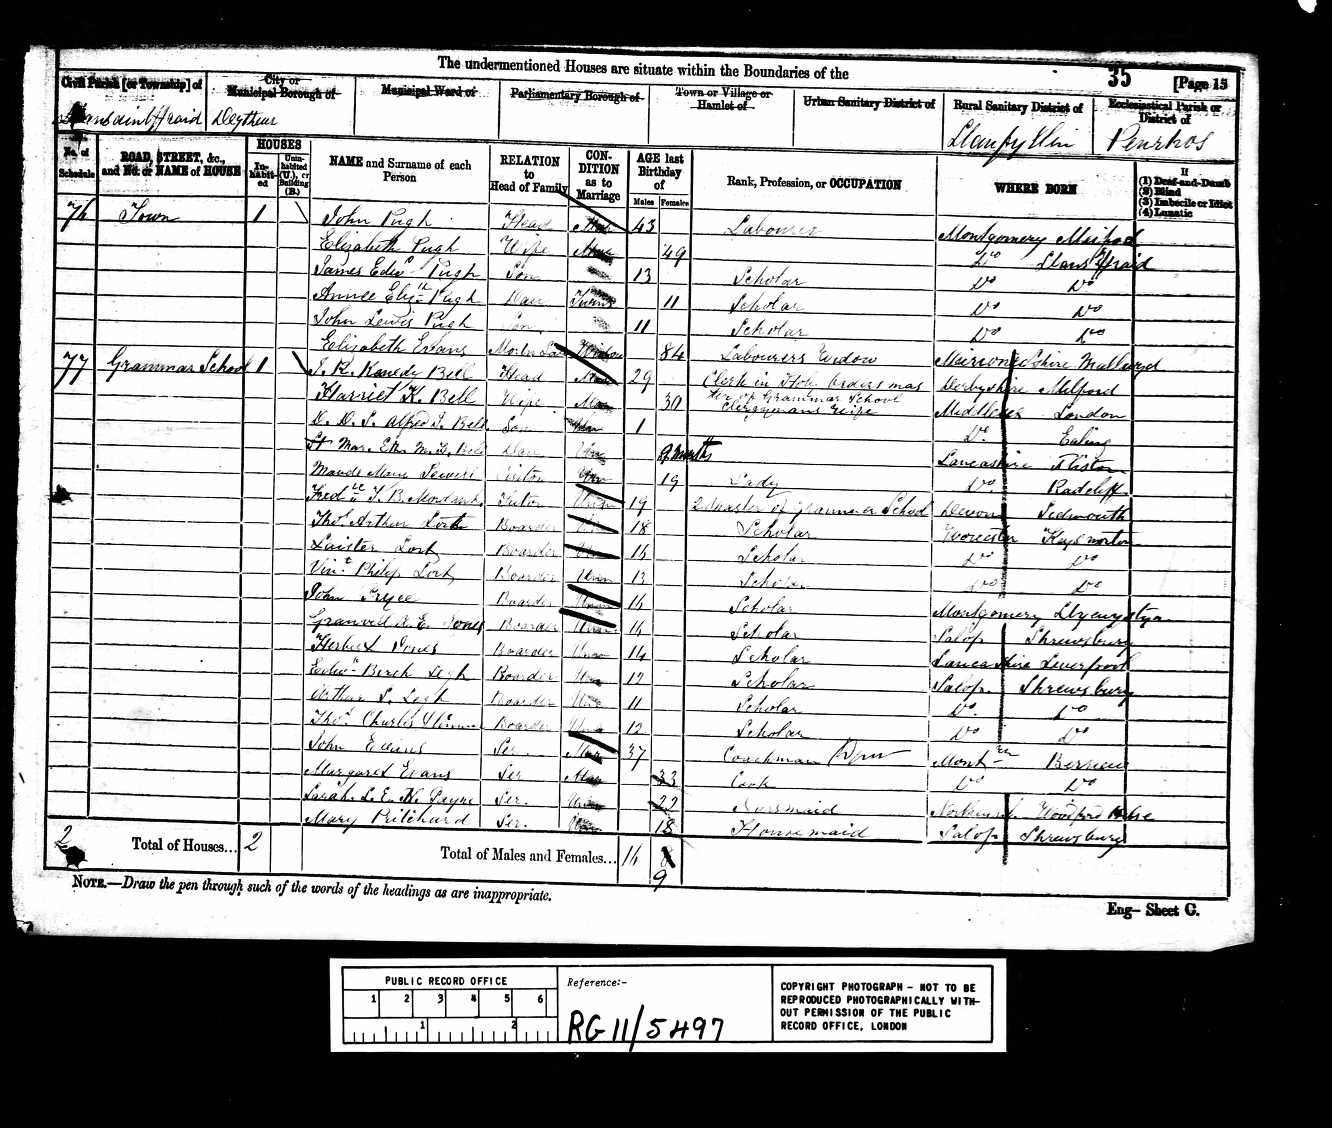 The undermentioned Houses are situate within the Boundaries of the
35
[Page 15
Civil Parish [or Township] of
City or Municipal Borough of
Municipal Ward of
Parliamentary Borough of
Town or Village or Hamlet of
Urban Sanitary District of
Rural Sanitary District of
Ecclesiastical Parish or District of
Deythur
Llanfyllin
Penrhos
No. of Schedule
ROAD, STREET, &c., and No. or NAME of HOUSE
HOUSES
In-habit-ed
Unin-habited (U.), or Building (B.)
NAME and Surname of each Person
RELATION to Head of Family
CON-DITION as to Marriage
AGE last Birthday of
Males
Females
Rank, Profession, or OCCUPATION
WHERE BORN
If
(1) Deaf-and-Dumb
(2) Blind
(3) Imbecile or Idiot
(4) Lunatic
76 Town 1 John Pugh Head Mar 43 Labourer Montgomery Meifod
Elizabeth Pugh Wife Mar 49 Do
James Edwd Pugh Son 13 Scholar Do Do
Annee Elizth Pugh Daur 11 Scholar Do Do
John Lewis Pugh Son 11 Scholar Do Do
Elizabeth Evans Widow 84 Labourers Widow
77 Grammar School 1 Bell Head Mar 29 Clerk in Holy Orders mas Derbyshire Milford
ter of Grammar School
Harriet K. Bell Wife Mar 30 Clergymans Wife Middlesex London
Alfred Bell Son Un 1 Do. Ealing
Daur Un 9 Months Lancashire
Maude Mary Visitor Un 19 Lady Do. Radcliff
Tutor Unm 19 2 Master of Grammar School Devon Sedmouth
Thos Arthur Boarder Un 18 Scholar Worcester
Boarder Un 16 Scholar Do Do
Philip Boarder Unm 13 Scholar Do Do
John Pryce Boarder Unm 16 Scholar Montgomery
E. Jones Boarder Unm 16 Scholar Salop Shrewsbury
Herbert Jones Boarder Unm 14 Scholar Lancashire Liverpool
Edwd Birch Leigh Boarder Unm 12 Scholar Salop. Shrewsbury
Arthur Boarder Unm 11 Scholar Do. Do
Thos Charles Boarder Unm 12 Scholar Do Do
John Evans Ser. Mar 37 Coachman Montgy Berriew
Margaret Evans Ser Mar 33 Cook Do Do
Sarah Payne Ser. Unm 22 Nursmaid
Mary Pritchard Ser. Un 18 Housemaid Salop Shrewsbury
2 Total of Houses... 2
Total of Males and Females... 16 8
9
NOTE.—Draw the pen through such of the words of the headings as are inappropriate.
Eng— Sheet G.
PUBLIC RECORD OFFICE
1 2 3 4 5 6
1 2
Reference:-
RG 11/5497
COPYRIGHT PHOTOGRAPH - NOT TO BE
REPRODUCED PHOTOGRAPHICALLY WITH-
OUT PERMISSION OF THE PUBLIC
RECORD OFFICE, LONDON